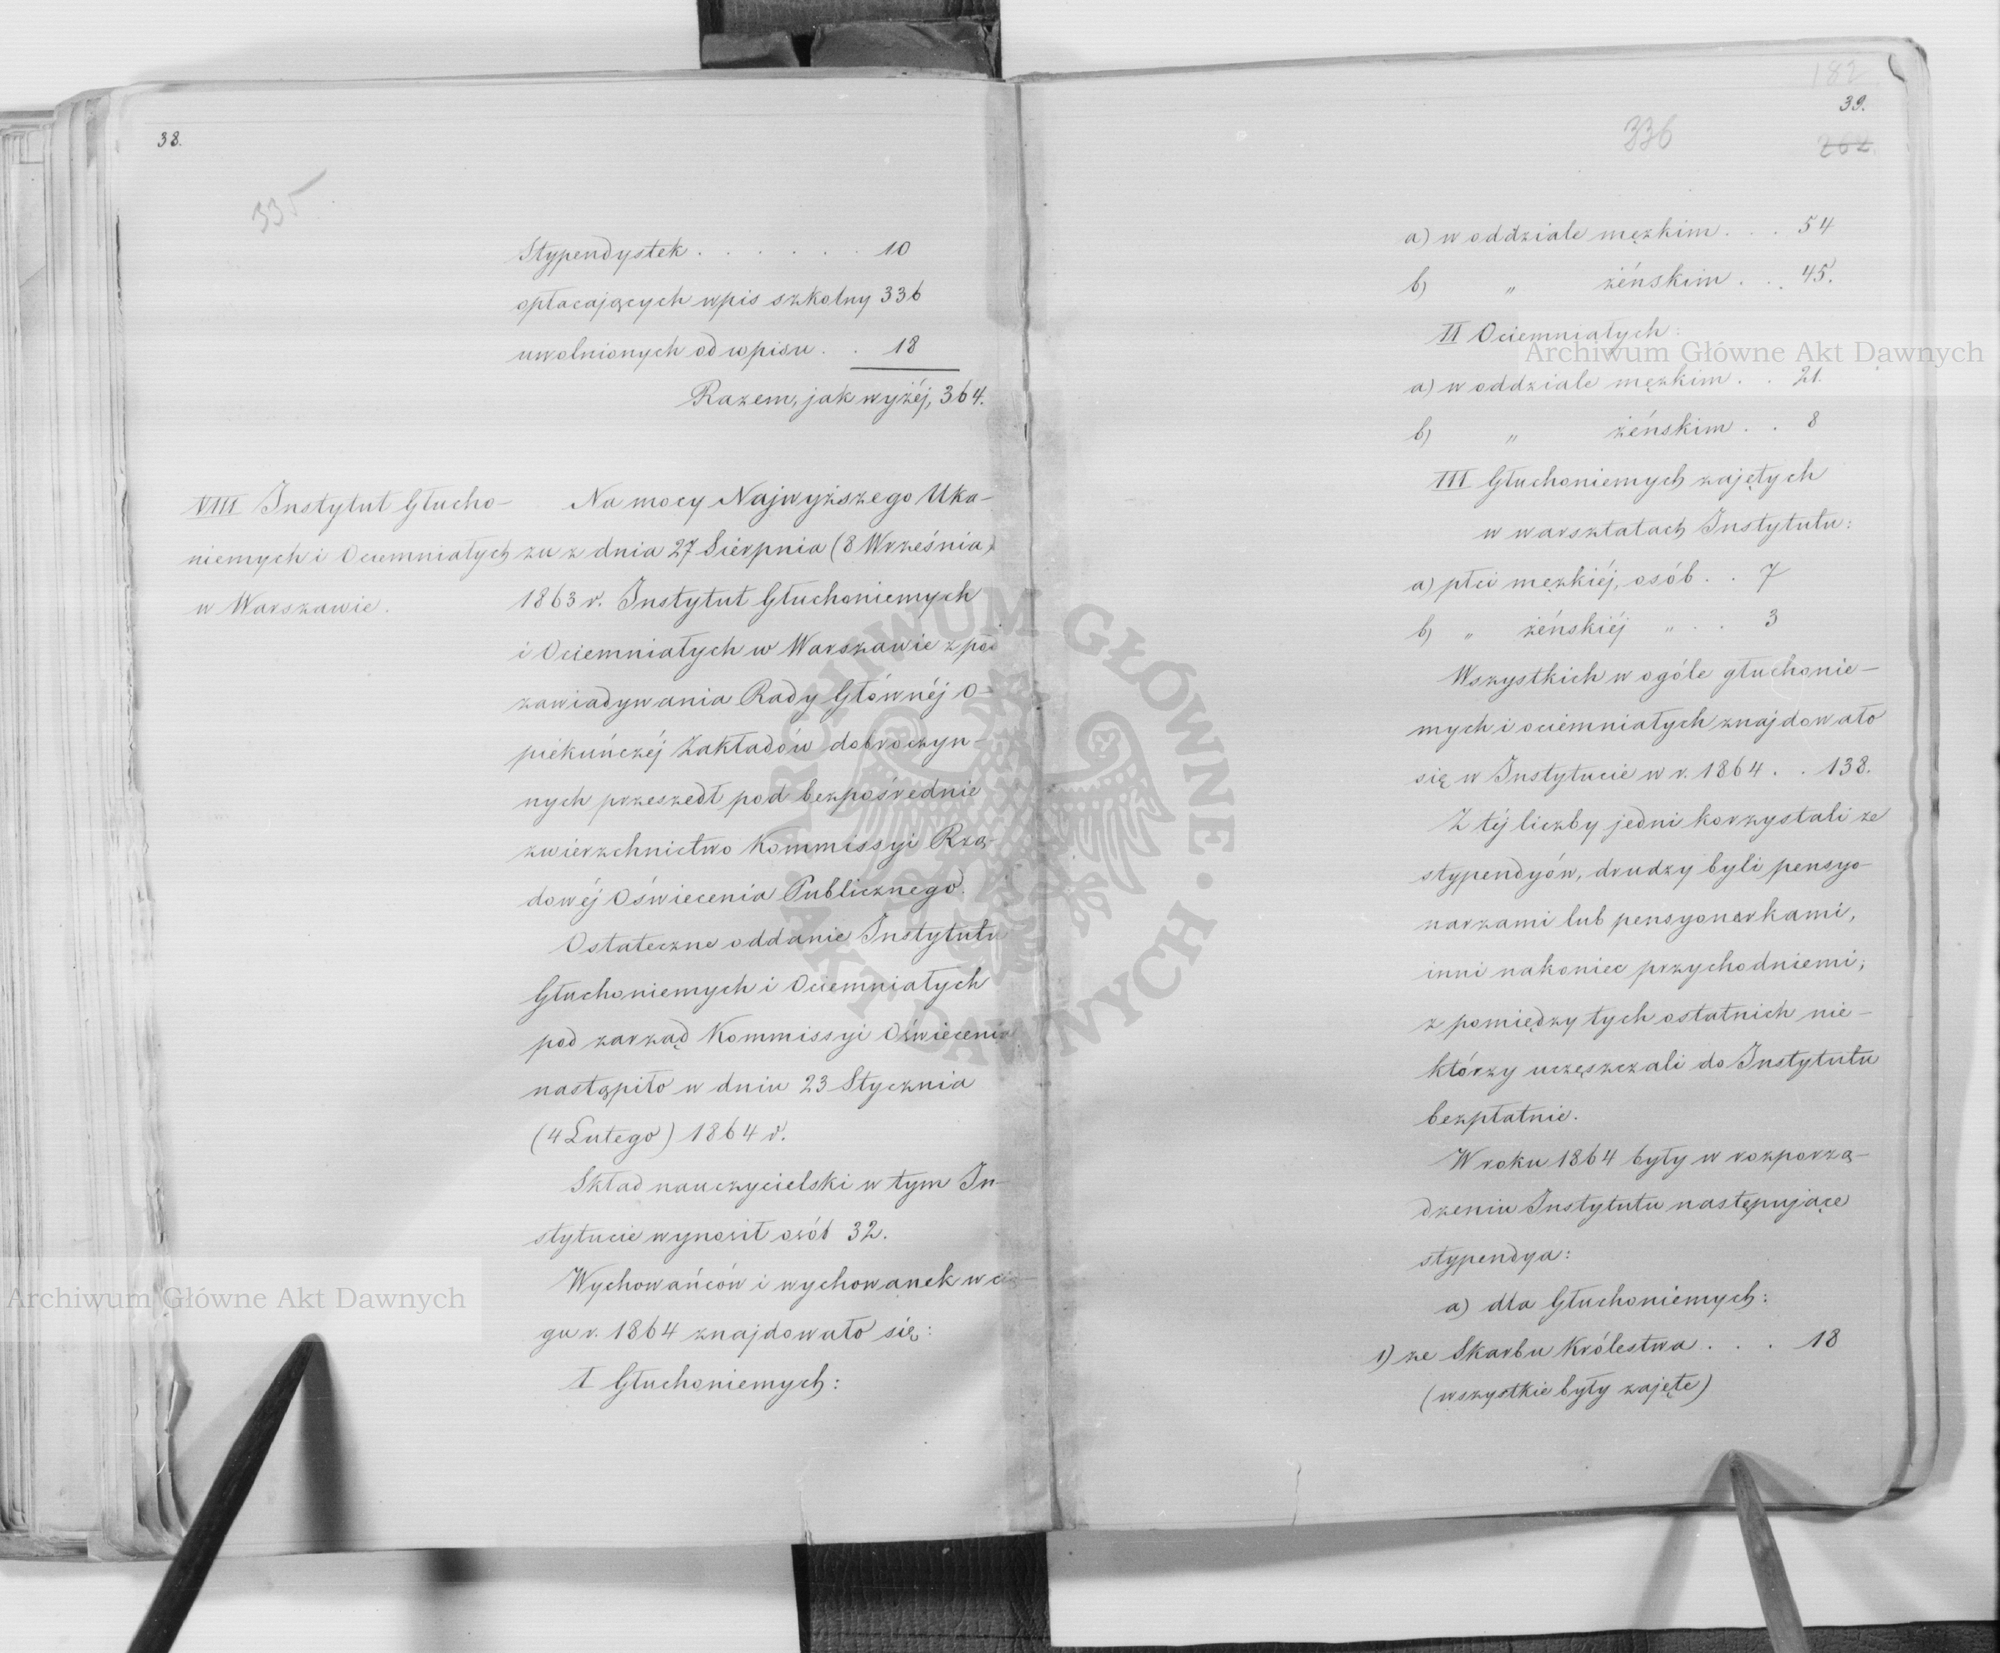 38.
335
Stypendystek . . . . . . 10
opłacających wpis szkolny 336
uwolnionych od wpisu . . 18
Razem, jak wyżéj, 364.
VIII Instytut Głucho-
niemych i Ociemniałych
w Warszawie.
Na mocy Najwyższego Uka-
zu z dnia 27 Sierpnia (8 Września)
1863 r. Instytut Głuchoniemych
i Ociemniałych w Warszawie z pod
zawiadywania Rady Głównéj O-
piekuńczéj Zakładów dobroczyn-
nych przeszedł pod bezpośrednie
zwierzchnictwo Kommissyi Rzą-
dowéj Oświecenia Publicznego.
Ostateczne oddanie Instytutu
Głuchoniemych i Ociemniałych
pod zarząd Kommissyi Oświecenia
nastąpiło w dniu 23 Stycznia
(4 Lutego) 1864 r.
Skład nauczycielski w tym In-
stytucie wynosił osób 32.
Wychowańców i wychowanek w cią-
gu r. 1864 znajdowało się:
I Głuchoniemych:
182
39.
336
262
a) w oddziale męzkim . . . 54
b) „ żeńskim . . . 45.
II Ociemniałych:
a) w oddziale męzkim . . 21.
b) „ żeńskim . . 8
III Głuchoniemych zajętych
w warsztatach Instytutu:
a) płci męzkiéj, osób . . 7
b) „ żeńskiéj „ . . 3
Wszystkich w ogóle głuchonie-
mych i ociemniałych znajdowało
się w Instytucie w r. 1864 . . 138.
Z téj liczby jedni korzystali ze
stypendyów, drudzy byli pensyo-
narzami lub pensyonarkami,
inni nakoniec przychodniemi;
z pomiędzy tych ostatnich nie-
którzy uczęszczali do Instytutu
bezpłatnie.
W roku 1864 były w rozporzą-
dzeniu Instytutu następujące
stypendya:
a) dla Głuchoniemych:
1) ze Skarbu Królestwa . . . 18
(wszystkie były zajęte)
Archiwum Główne Akt Dawnych
Archiwum Główne Akt Dawnych
ARCHIWUM GŁÓWNE · AKT DAWNYCH ·